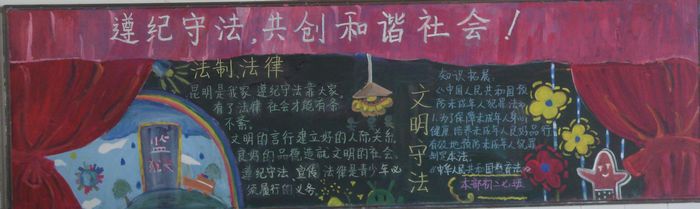 遵纪守法,共创和谐社会!
法制、法律
昆明是我家 遵纪守法靠大家,
有了法律 社会才能有条
不紊。
文明的言行建立好的人际关系,
良好的品德造就文明的社会。
遵纪守法、宣传 法律是青少年必
须履行的义务。
监狱
文明守法
知识拓展
《中国人民共和国预
防未成年人犯罪法》
《为了保障未成年人身心
健康 培养未成年人良好品行
有效地预防未成年人犯罪
制定本法。
《中华人民共和国教育法》
本部初二七班